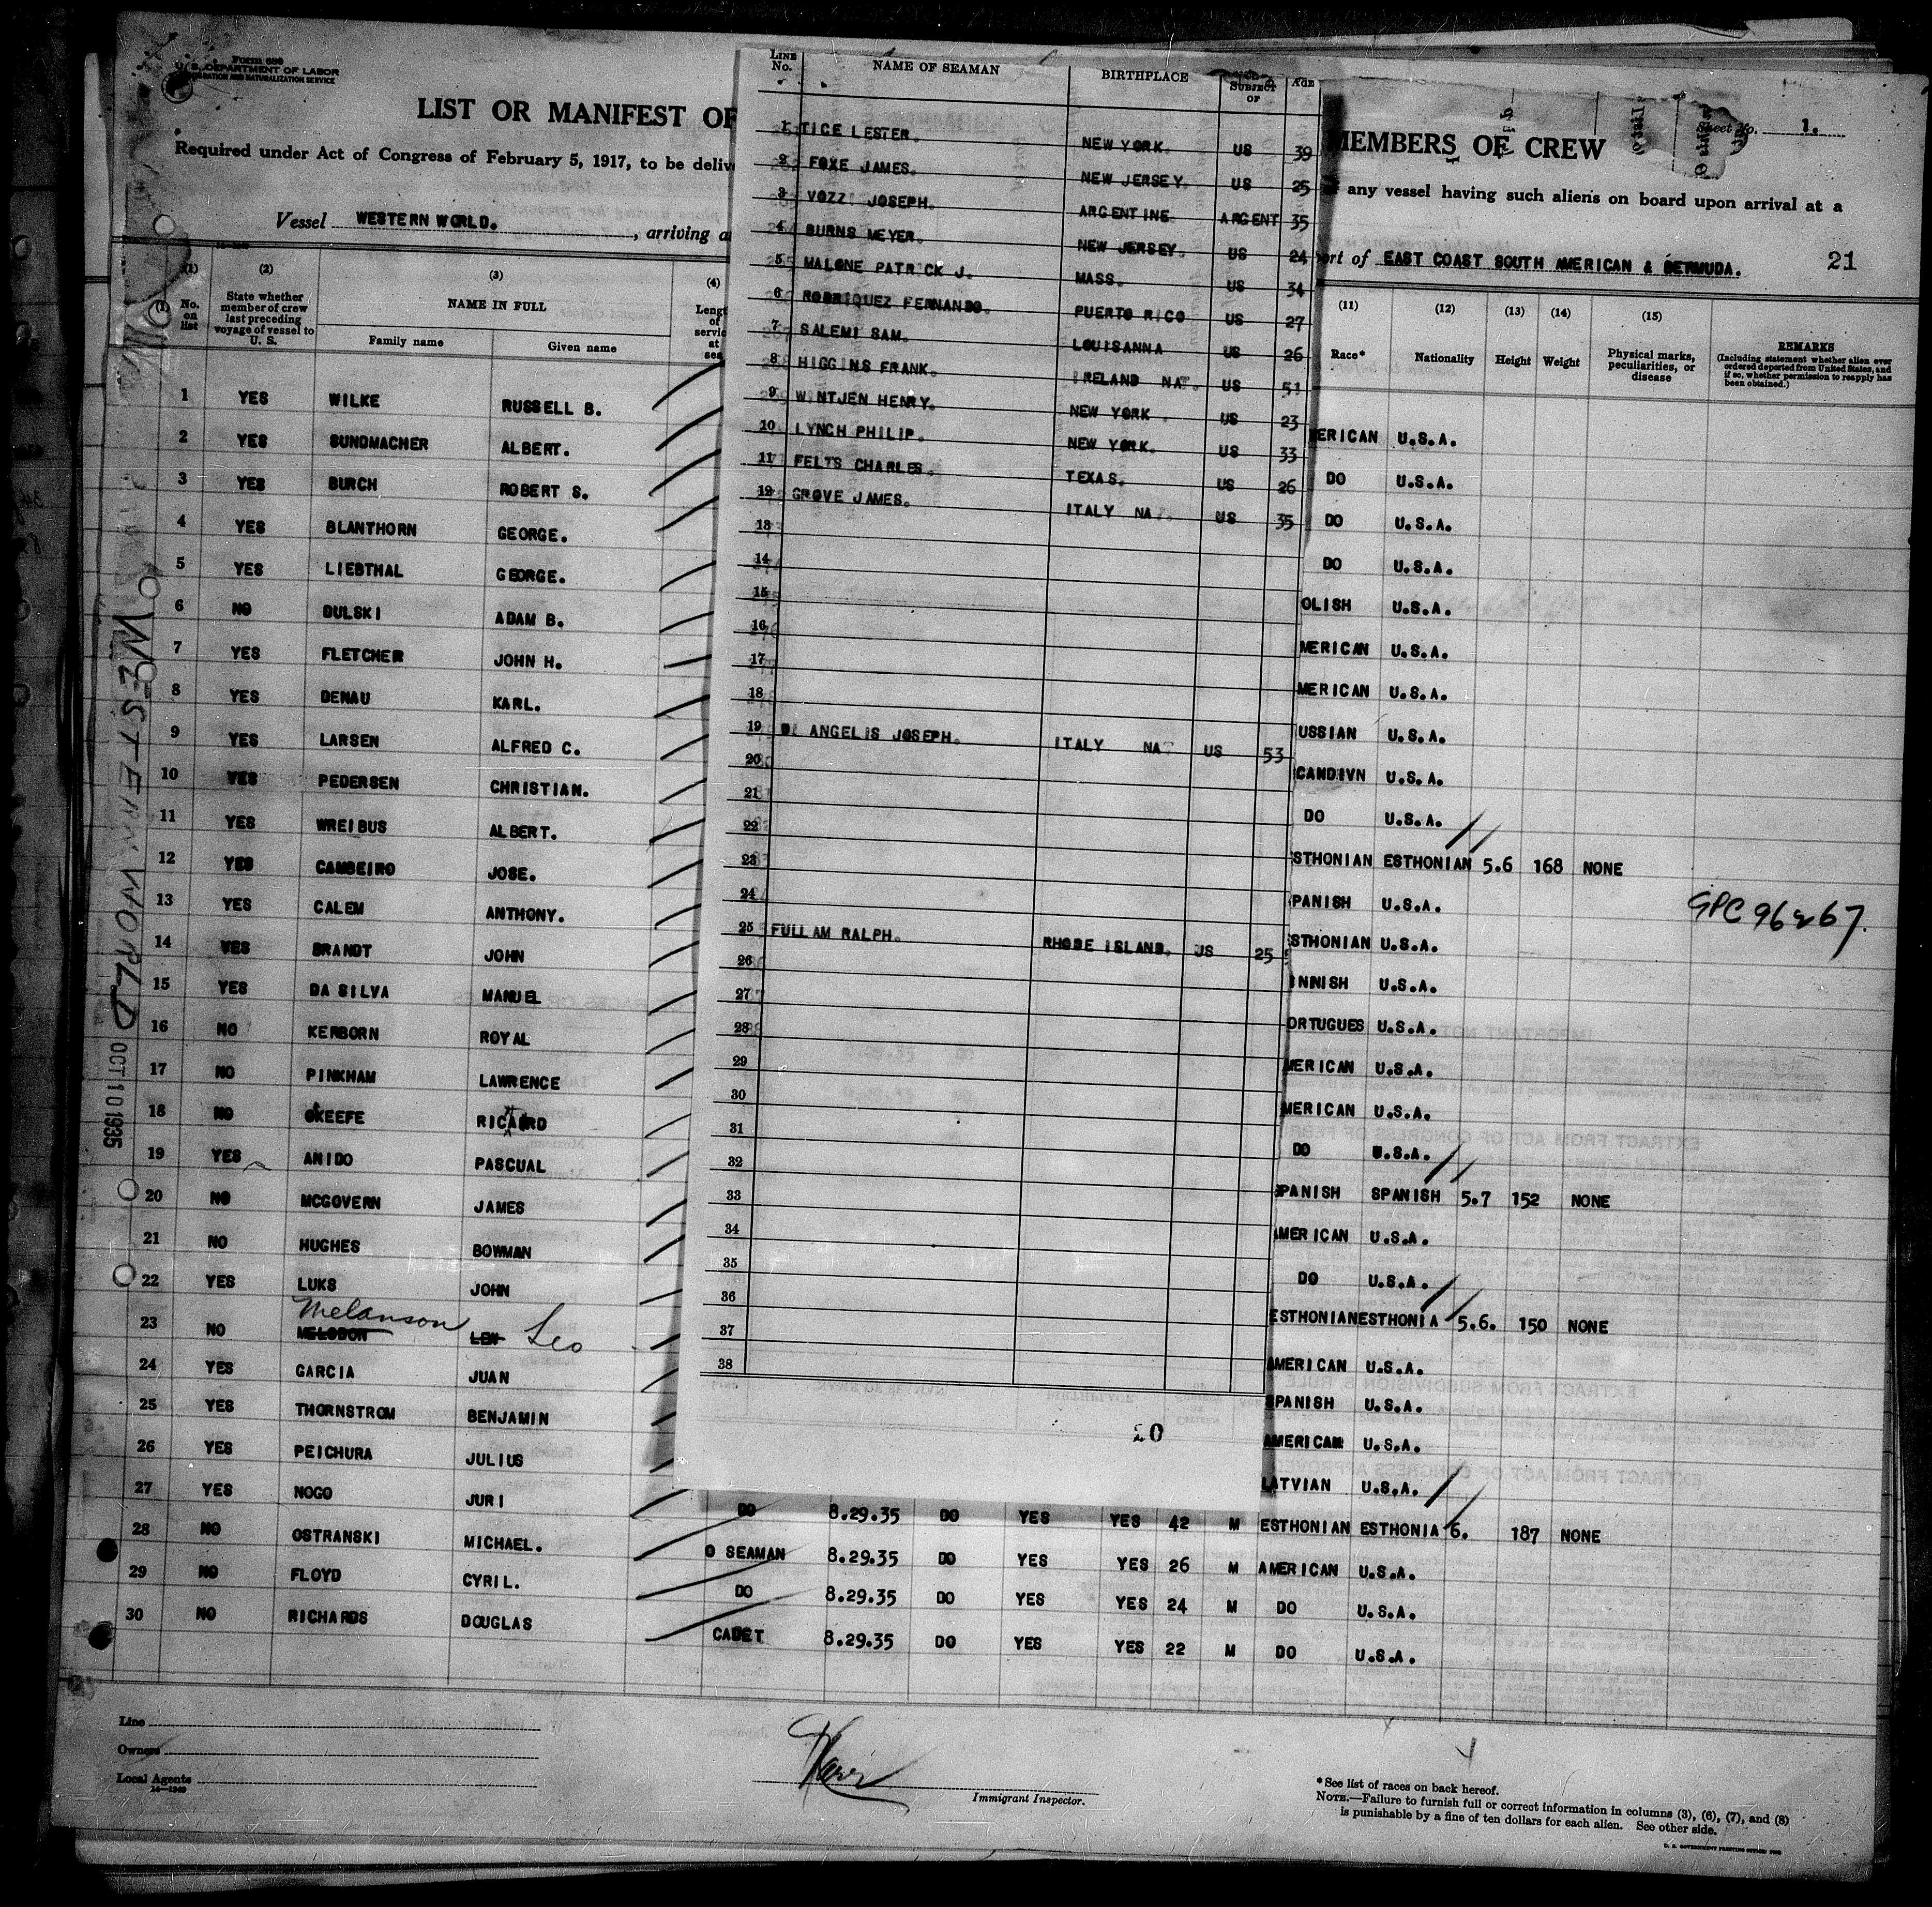 Form 680
U. S. DEPARTMENT OF LABOR
IMMIGRATION AND NATURALIZATION SERVICE
LIST OR MANIFEST OF MEMBERS OF CREW
Sheet No. 1.
Required under Act of Congress of February 5, 1917, to be deliv any vessel having such aliens on board upon arrival at a
Vessel WESTERN WORLD. , arriving a ort of EAST COAST SOUTH AMERICAN & BERMUDA. 21
(1) (2) (3) (4) (11) (12) (13) (14) (15)
No. on list State whether member of crew last preceding voyage of vessel to U. S. NAME IN FULL Family name Given name Race* Nationality Height Weight Physical marks, peculiarities, or disease REMARKS (Including statement whether alien ever ordered deported from United States, and if so, whether permission to reapply has been obtained.)
1 YES WILKE RUSSELL B. ERICAN U.S.A.
2 YES SUNDMACHER ALBERT. DO U.S.A.
3 YES BURCH ROBERT S. DO U.S.A.
4 YES BLANTHORN GEORGE. DO U.S.A.
5 YES LIEBTHAL GEORGE. OLISH U.S.A.
6 NO DULSKI ADAM B. MERICAN U.S.A.
7 YES FLETCHER JOHN H. MERICAN U.S.A.
8 YES DENAU KARL. USSIAN U.S.A.
9 YES LARSEN ALFRED C. CANDIVN U.S.A.
10 YES PEDERSEN CHRISTIAN. DO U.S.A.
11 YES WREIBUS ALBERT. STHONIAN ESTHONIAN 5.6 168 NONE
12 YES CAMBEIRO JOSE. PANISH U.S.A.
GPC 96267.
13 YES CALEM ANTHONY. STHONIAN U.S.A.
14 YES BRANDT JOHN INNISH U.S.A.
15 YES DA SILVA MANUEL ORTUGUES U.S.A.
16 NO KERBORN ROYAL MERICAN U.S.A.
17 NO PINKHAM LAWRENCE MERICAN U.S.A.
18 NO OKEEFE RICAHRD DO U.S.A.
19 YES ANIDO PASCUAL PANISH SPANISH 5.7 152 NONE
20 NO MCGOVERN JAMES AMERICAN U.S.A.
21 NO HUGHES BOWMAN DO U.S.A.
22 YES LUKS JOHN ESTHONIAN ESTHONIA 5.6. 150 NONE
Melanson
23 NO MELODON LEN Leo AMERICAN U.S.A.
24 YES GARCIA JUAN SPANISH U.S.A.
25 YES THORNSTROM BENJAMIN AMERICAN U.S.A.
26 YES PEICHURA JULIUS LATVIAN U.S.A.
27 YES NOGO JURI DO 8.29.35 DO YES YES 42 M ESTHONIAN ESTHONIA 6. 187 NONE
28 NO OSTRANSKI MICHAEL. O SEAMAN 8.29.35 DO YES YES 26 M AMERICAN U.S.A.
29 NO FLOYD CYRIL. DO 8.29.35 DO YES YES 24 M DO U.S.A.
30 NO RICHARDS DOUGLAS CADET 8.29.35 DO YES YES 22 M DO U.S.A.
WESTERN WORLD OCT 10 1935
LINE No. NAME OF SEAMAN BIRTHPLACE SUBJECT OF AGE
1 TICE LESTER. NEW YORK. US 39
2 FOXE JAMES. NEW JERSEY. US 25
3 VOZZI JOSEPH. ARGENTINE. ARGENT 35
4 BURNS MEYER. NEW JERSEY. US 24
5 MALONE PATRICK J. MASS. US 34
6 RODRIQUEZ FERNANDO. PUERTO RICO US 27
7 SALEMI SAM. LOUISANNA US 26
8 HIGGINS FRANK. IRELAND NAT. US 51
9 WINTJEN HENRY. NEW YORK. US 23
10 LYNCH PHILIP. NEW YORK. US 33
11 FELTS CHARLES. TEXAS. US 26
12 GROVE JAMES. ITALY NAT. US 35
13
14
15
16
17
18
19 DI ANGELIS JOSEPH. ITALY NAT US 53
20
21
22
23
24
25 FULLAM RALPH. RHODE ISLAND. US 25
26
27
28
29
30
31
32
33
34
35
36
37
38
20
Line
Owners
Local Agents
14—1240
Immigrant Inspector.
*See list of races on back hereof.
NOTE.—Failure to furnish full or correct information in columns (3), (6), (7), and (8)
is punishable by a fine of ten dollars for each alien. See other side.